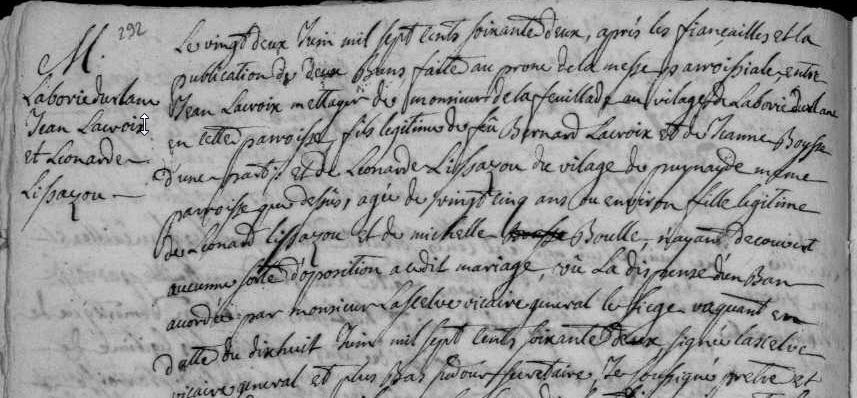 M.
292
Laborie durlane
Jean Lacroix
et Leonarde
Lissajou
Le vingt deux Juin mil sept cents soixante deux, aprés les fiançailles et la
publication de deux Bans faitte au prone de la messe parroissiale entre
Jean Lacroix mettayer de monsieur de la feuillade au vilage de Laborie durlane
en cette parroisse, fils legitime de feû Bernard Lacroix et de Jeanne Boysse
d'une part; et de Leonarde Lissajou du vilage de puynayde même
parroisse que dessus, agée de vingt cinq ans ou environ fille legitime
de Leonard lissajou et de michelle Boulle, n'ayant decouvert
aucunne sorte d'oposition audit mariage, vû La dispense d'en Ban
acordée par monsieur Lasselve vicaire general le siege vaquant en
datte du dixhuit Juin mil sept cents soixante deux signée Lasselve
vicaire general et plus Bas secretaire, Je soussigné pretre et